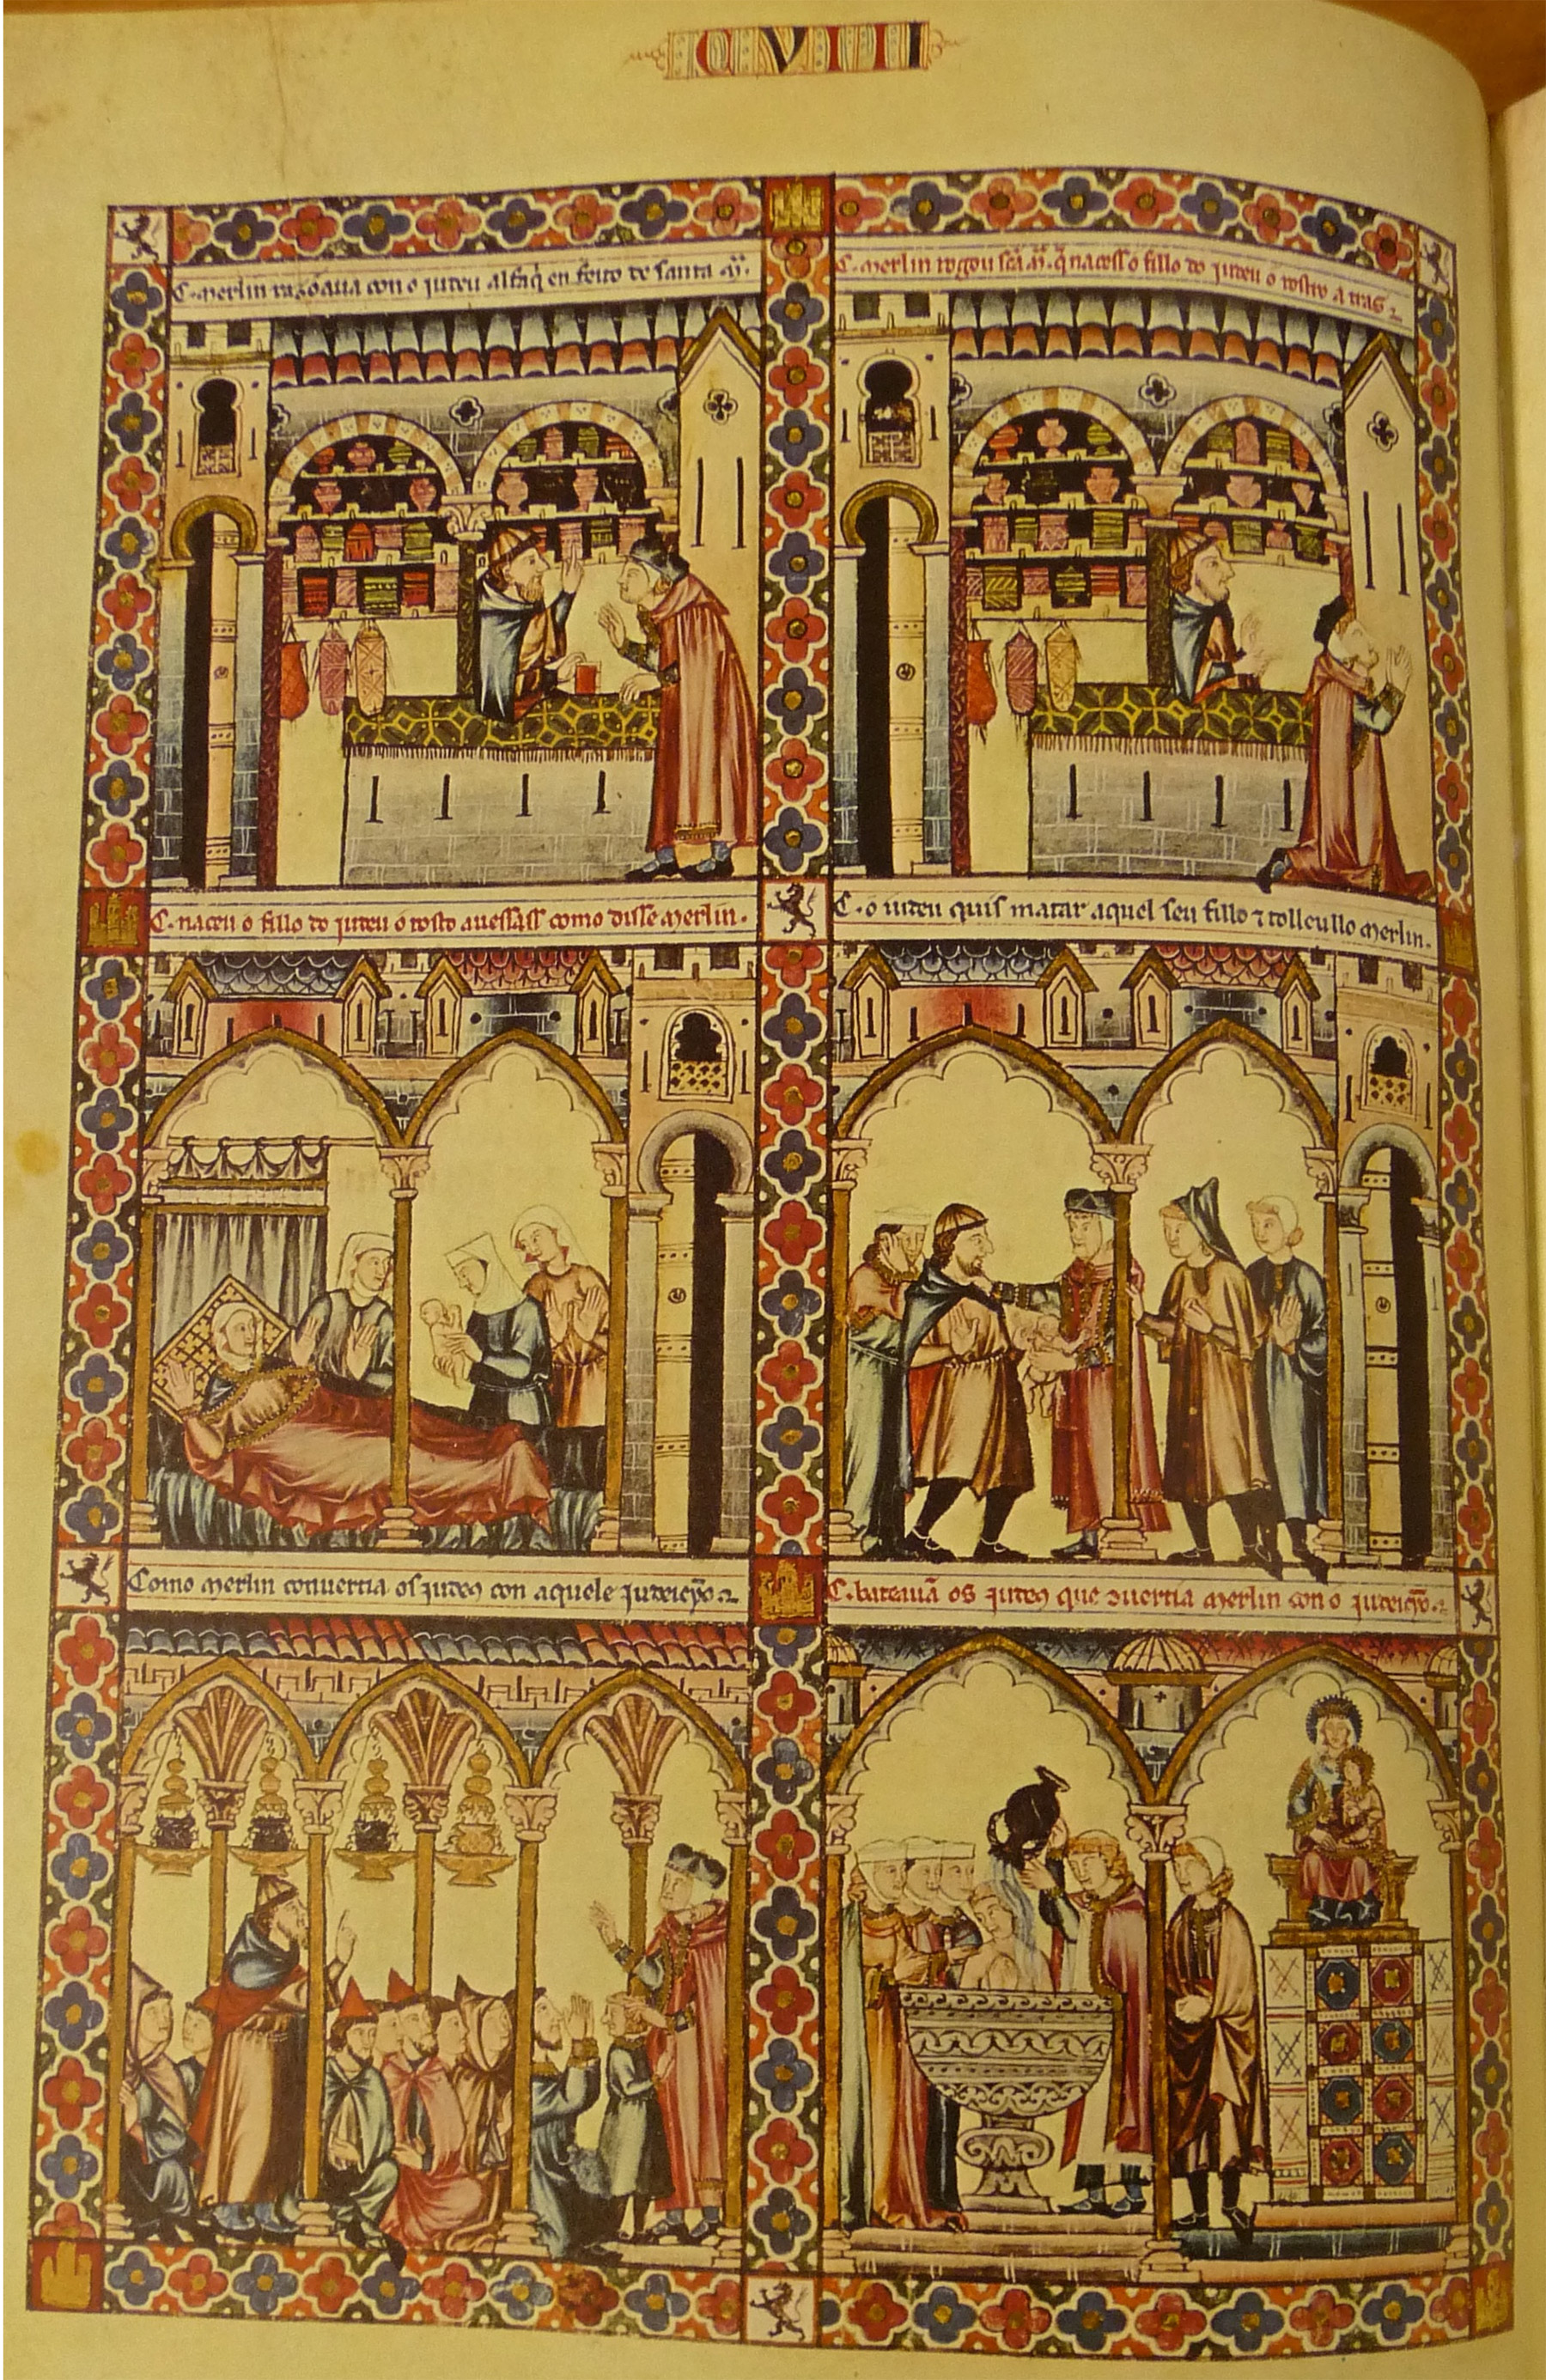 CVIII
C. merlin razõaua con o iudeu alfaq̇ en feito de santa m̃.
C. merlin rogou scã m̃. q̇ nacess o fillo do iudeu o rostro atras
C. naceu o fillo do iudeu o rosto auessass como disse merlin.
C. o iudeu quis matar aquel seu fillo ⁊ tolleullo merlin.
Como merlin conuertia os iudeus con aquele iudeicỹo
C. bateauã os iudeus que ↄuertia merlin con o iudeicỹo